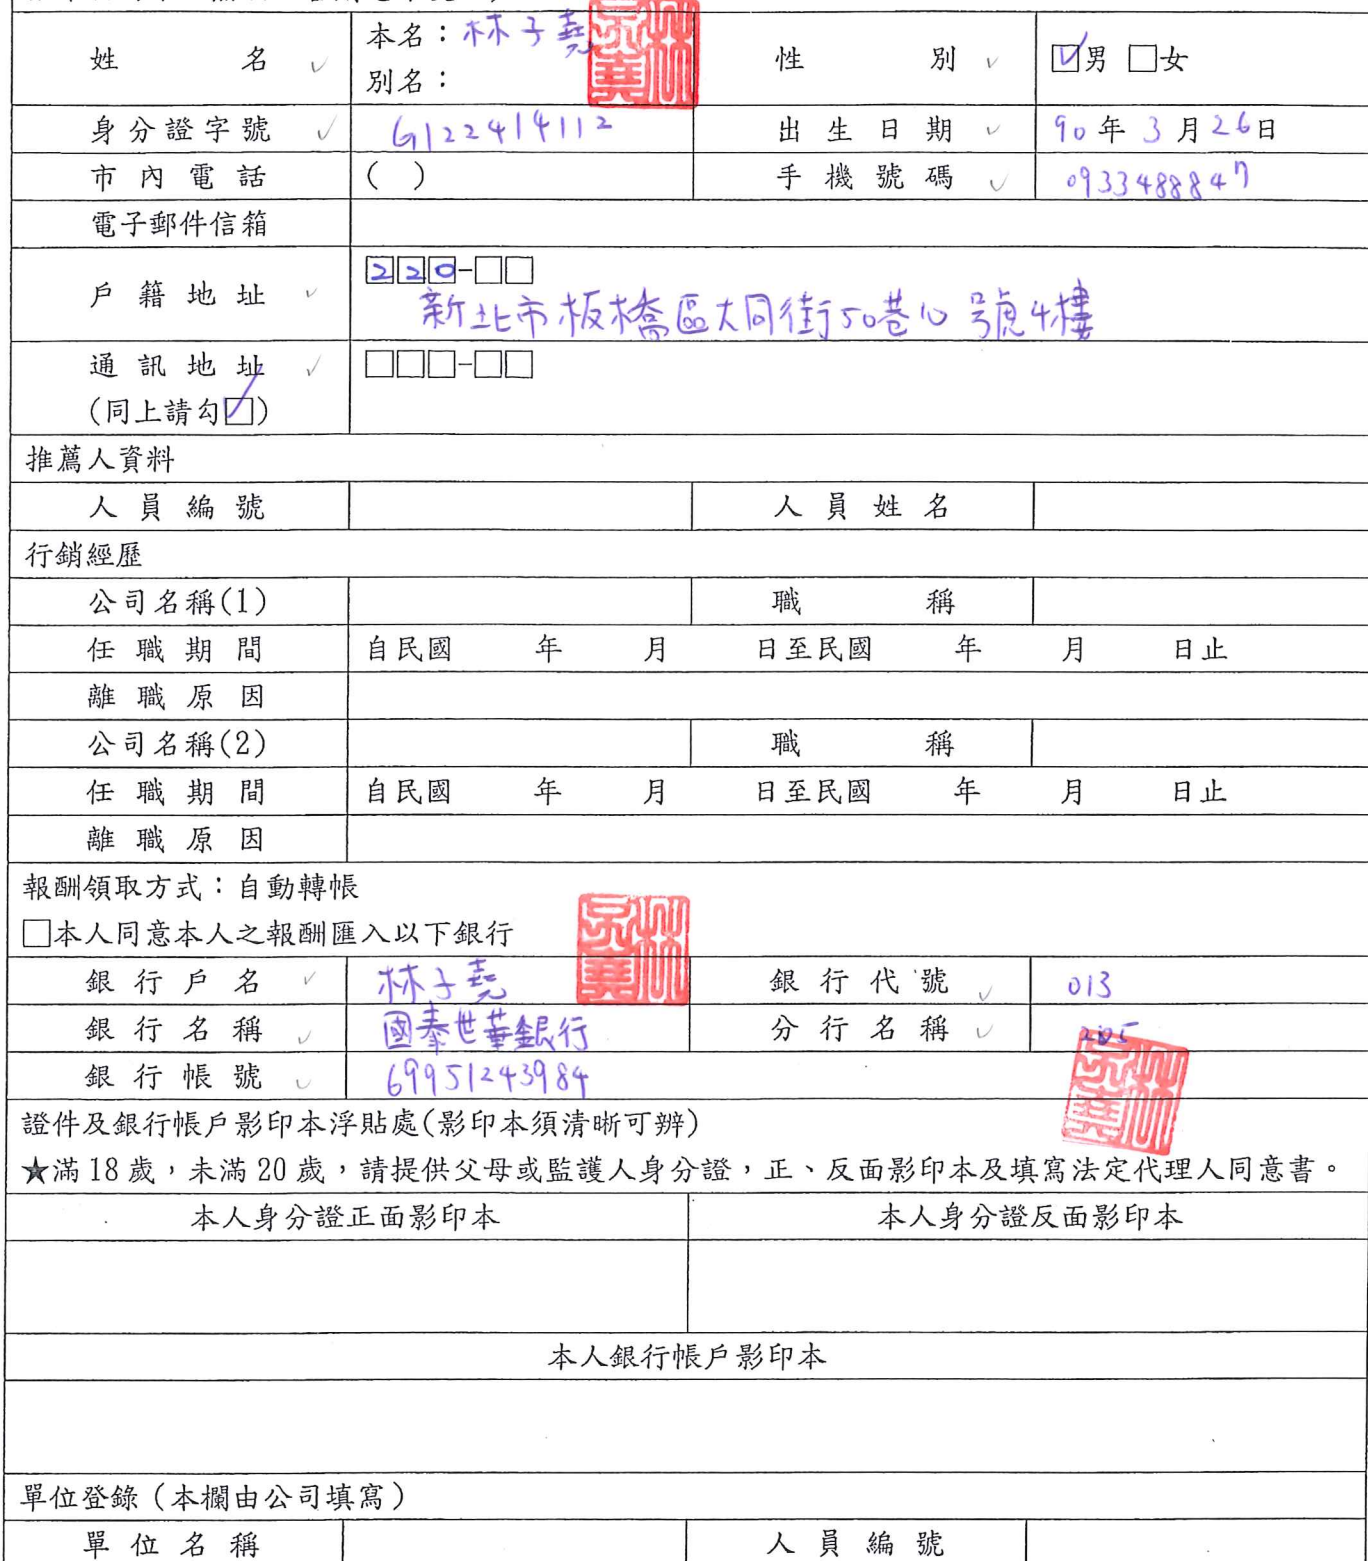 姓名 本名：林子堯 性別 ☑男 □女
別名：
身分證字號 G122414112 出生日期 90年3月26日
市內電話 ( ) 手機號碼 0933488847
電子郵件信箱
戶籍地址 220-□□
新北市板橋區大同街50巷10號4樓
通訊地址 □□□-□□
(同上請勾☑)
推薦人資料
人員編號 人員姓名
行銷經歷
公司名稱(1) 職稱
任職期間 自民國 年 月 日至民國 年 月 日止
離職原因
公司名稱(2) 職稱
任職期間 自民國 年 月 日至民國 年 月 日止
離職原因
報酬領取方式：自動轉帳
□本人同意本人之報酬匯入以下銀行
銀行戶名 林子堯 銀行代號 013
銀行名稱 國泰世華銀行 分行名稱 205
銀行帳號 69951243984
證件及銀行帳戶影印本浮貼處(影印本須清晰可辨)
★滿18歲，未滿20歲，請提供父母或監護人身分證，正、反面影印本及填寫法定代理人同意書。
本人身分證正面影印本 本人身分證反面影印本
本人銀行帳戶影印本
單位登錄（本欄由公司填寫）
單位名稱 人員編號